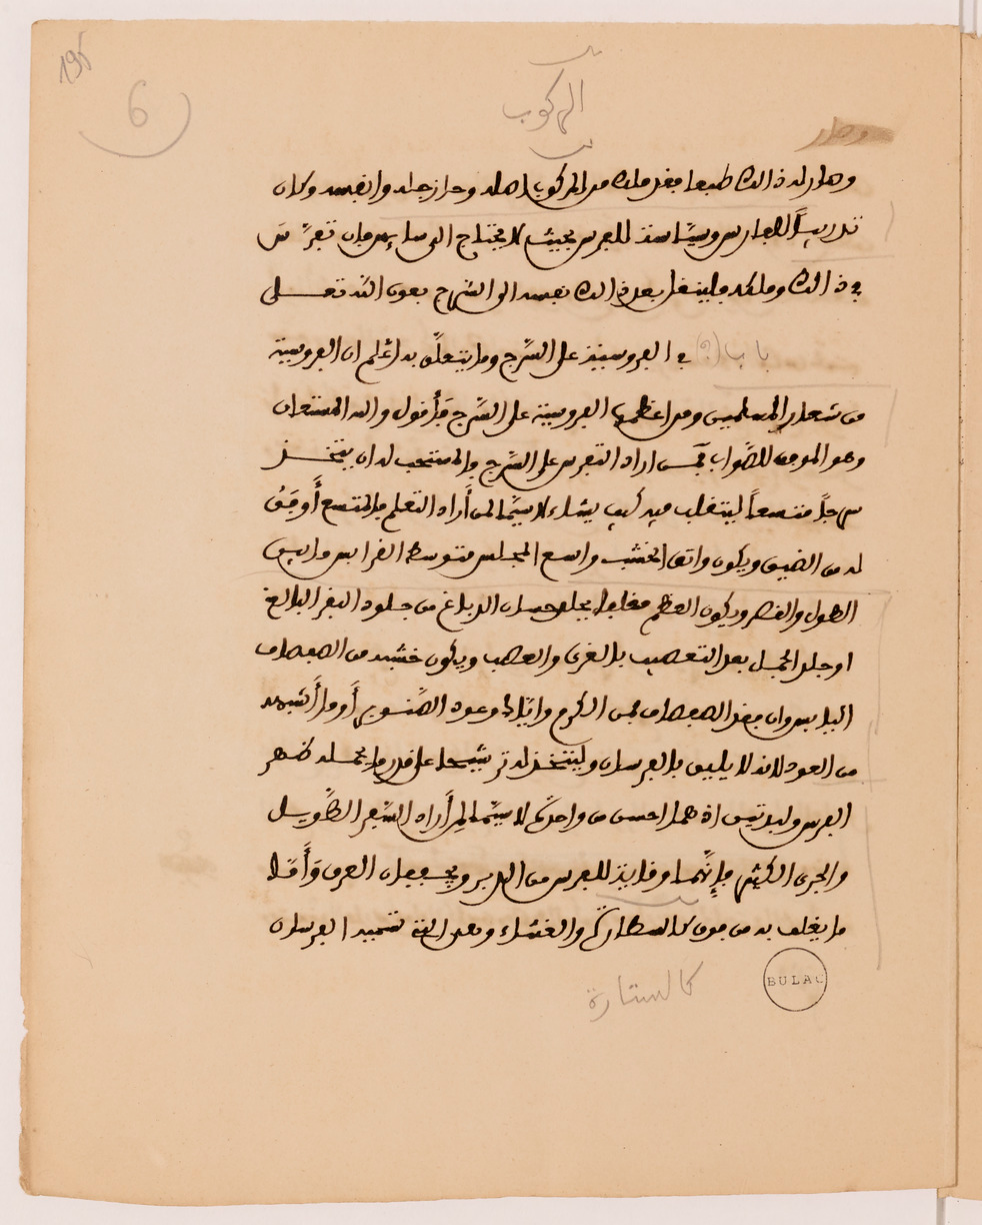 195
6
الركوب
وصار
وصار له ذالك طبعا فقد ملك من الركوب اصله وحاز جله وانفسه وكان
تدريباً للفارس وسياسة للفرس بحيث لا يحتاج الى سايس فان تفرّس
في ذالك وملكه فلينتقل بعد ذالك نفسه الى السرج بعون الله تعــلى
باب (؟) في الفروسية على السّرج وما يتعلّق به اعلم ان الفروسية
من شعار المسلمين ومن اعظمها الفروسية على السّرج فأقول والله المستعان
وهو الموفق للصّواب فمن اراد التفرس على السّرج فالمستحب له ان يتخــذ
سرجاً متسعاً ليتقلب فيه كيف يشاء لا سيّما لمن أراد التعلم فالمتسع أوفَقُ
له من الضيق ويكون واثق الخشب واسع المجلس متوسط القرابس وابين
الطول والقصر ويكون العظم مغلفا بجلد حسان الدباغ من جلود البقر البالغ
او جلد الجمل بعد التعصيب بالغرى والعصب ويكون خشبه من الصفصاف
اليابس وان فقد الصفصاف فمن الكرم وايّاك وعود الصّنوبر أو ما أشبهه
من العود لانه لا يليق بالفرسان وليتخذ له ترشيحا على قدر ما يحمله ظهر
الفرس ولبدتين اذ هما احسن من واحدة لا سيّما لمن أراد السّفر الطّويــل
والجرى الكثير فإنّهما وقاية للفرس من الدبر ويجففان العرق وَأَمّا
ما يغلف به من فوق كالسطارة والغشاء وهى التى تسميه الفرسان
كالستارة
BULAC